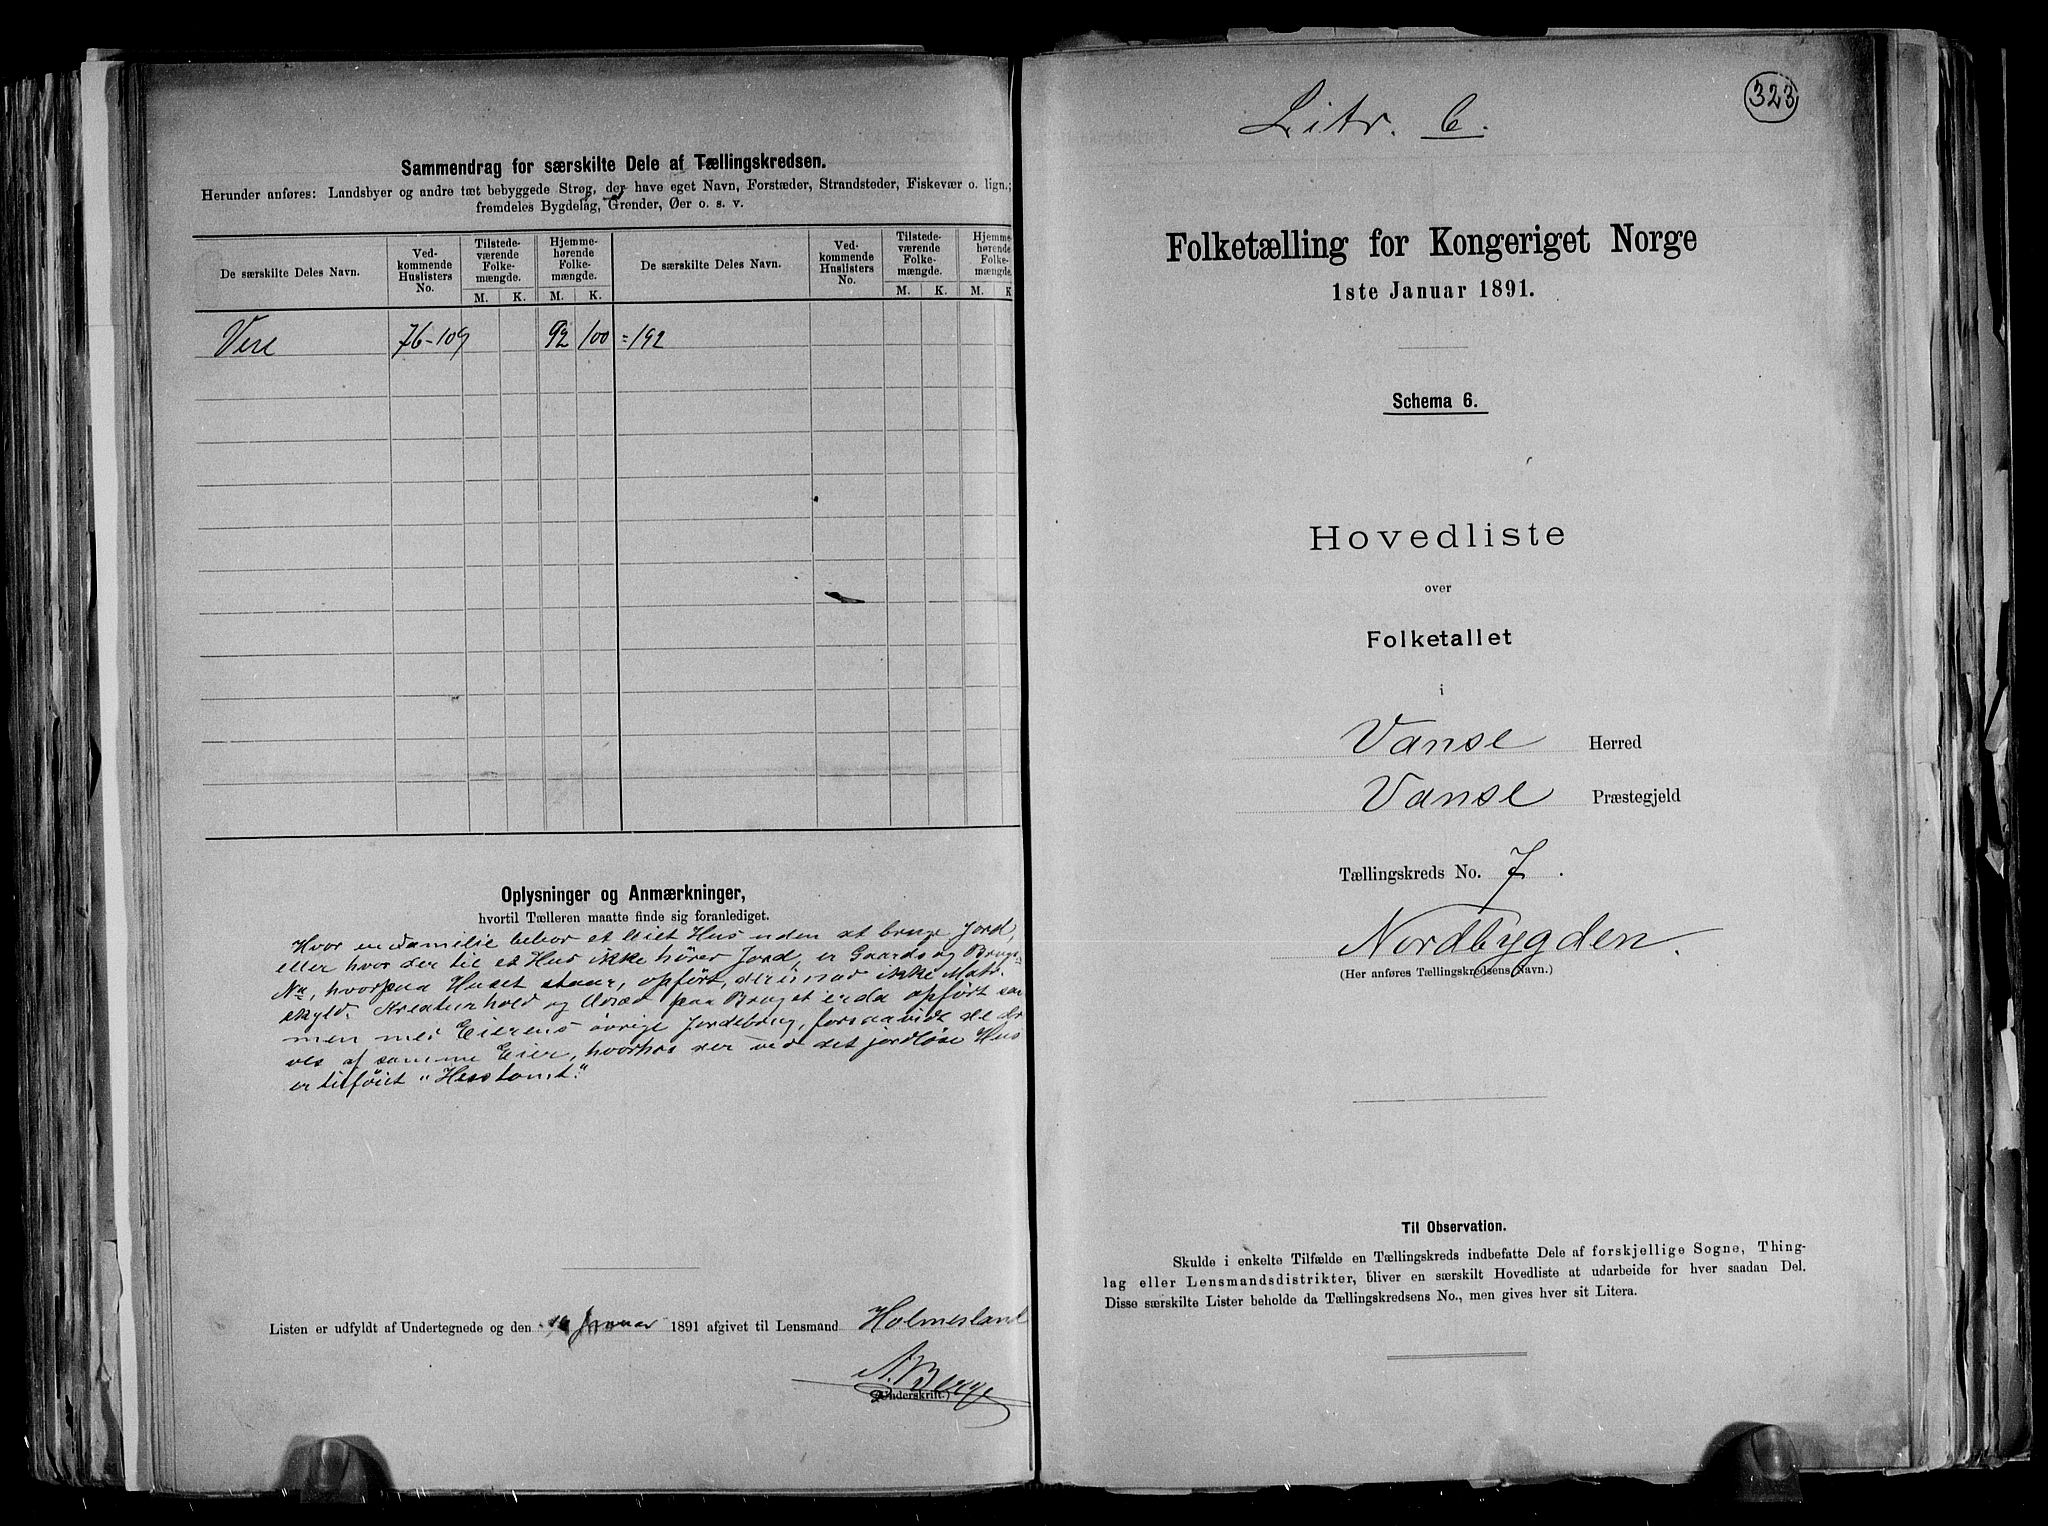 Sammendrag for særskilte Dele af Tællingskredsen.
Herunder anføres: Landsbyer og andre tæt bebyggede Strøg, der have eget Navn, Forstæder, Strandsteder, Fiskevær o. lign.;
fremdeles Bygdelag, Grender, Øer o. s. v.
De særskilte Deles Navn. Ved-kommende Huslisters No. Tilstede-værende Folke-mængde. Hjemme-hørende Folke-mængde. De særskilte Deles Navn. Ved-kommende Huslisters No. Tilstede-værende Folke-mængde. Hjemme-hørende Folke-mængde.
M. K. M. K. M. K. M. K
Vere 76-109 92 100 = 192
Oplysninger og Anmærkninger,
hvortil Tælleren maatte finde sig foranlediget.
Hvor en Familie bebor et leiet Hus uden at bruge Jord,
eller hvor der til et Hus ikke hører Jord, er Gaards og Brugs-
No, hvorpaa Huset staar, opført, derimod ikke Matr.
skyld. Kreaturhold og Udsæd paa Bruget er da opført sam
men med Eierens øvrige Jordebrug, forsaavidt de dr
ves af samme Eier, hvorhos der ved det jordløse Hus
er tilføiet "Hustomt."
Listen er udfyldt af Undertegnede og den Januar 1891 afgivet til Lensmand Holmesland
A. Berge
(Underskrift.)
323
Litr. C.
Folketælling for Kongeriget Norge
1ste Januar 1891.
Schema 6.
Hovedliste
over
Folketallet
i
Vanse Herred
Vanse Præstegjeld
Tællingskreds No. 7.
Nordbygden.
(Her anføres Tællingskredsens Navn.)
Til Observation.
Skulde i enkelte Tilfælde en Tællingskreds indbefatte Dele af forskjellige Sogne, Thing-
lag eller Lensmandsdistrikter, bliver en særskilt Hovedliste at udarbeide for hver saadan Del.
Disse særskilte Lister beholde da Tællingskredsens No., men gives hver sit Litera.